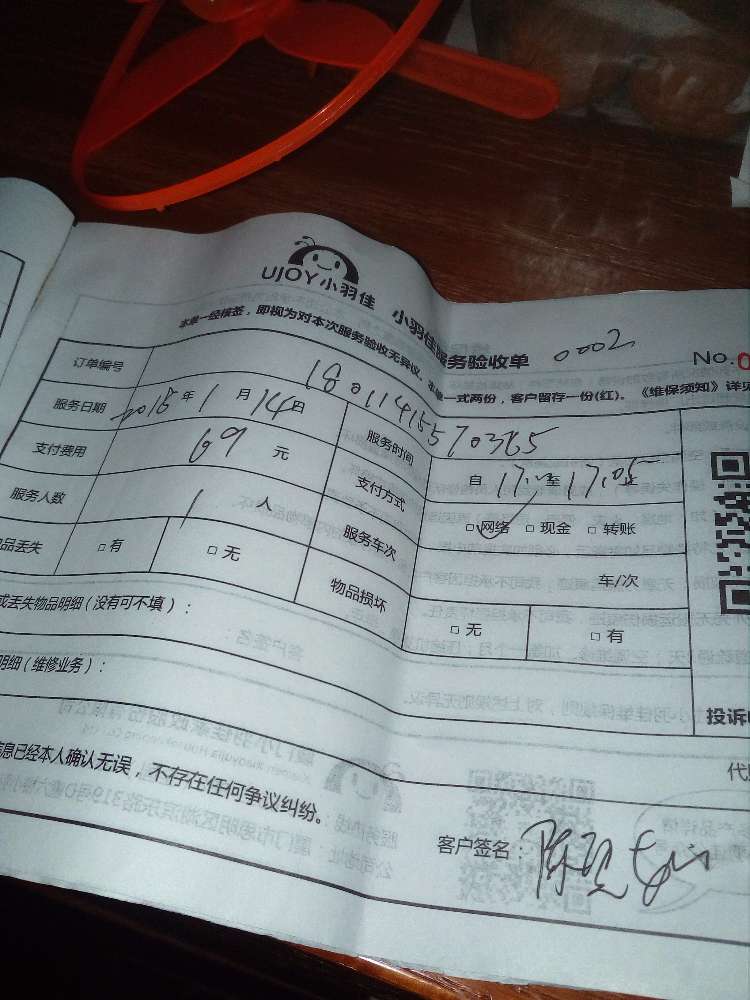 UJOY小羽佳 小羽佳服务验收单 0002
No.0
本单一经核签，即视为对本次服务验收无异议。本单一式两份，客户留存一份(红)。《维保须知》详见
订单编号 18011415570365
服务日期 2018年1月14日 服务时间 自17:00至17:05止
支付费用 69元 支付方式 □网络 □现金 □转账
服务人数 1人 服务车次 车/次
物品丢失 □有 □无 物品损坏 □无 □有
或丢失物品明细(没有可不填)：
明细(维修业务)：
投诉
信息已经本人确认无误，不存在任何争议纠纷。
客户签名：